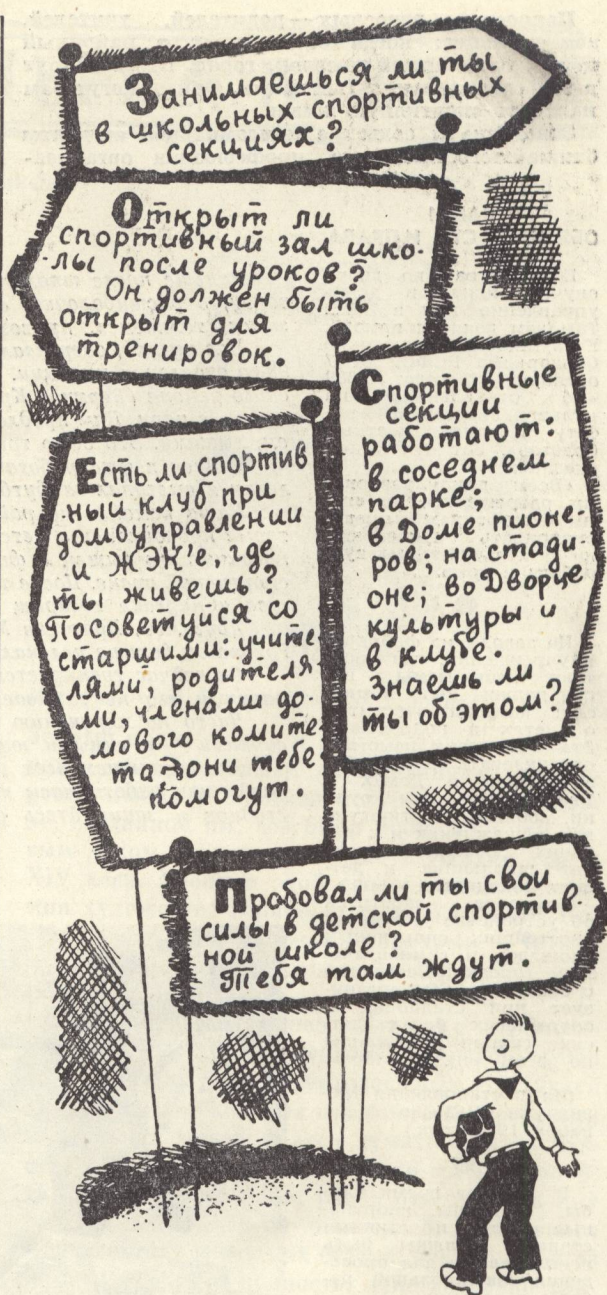 Занимаешься ли ты
в школьных спортивных
секциях?
Открыт ли
спортивный зал шко-
лы после уроков?
Он должен быть
открыт для
тренировок.
Спортивные
секции
работают:
в соседнем
парке;
в Доме пионе-
ров; на стади-
оне; во Дворце
культуры и
в клубе.
Знаешь ли
ты об этом?
Есть ли спортив
ный клуб при
домоуправлении
и ЖЭК'е, где
ты живешь?
Посоветуйся со
старшими: учите
лями, родителя
ми, членами до-
мового комите
та они тебе
помогут.
Пробовал ли ты свои
силы в детской спортив-
ной школе?
Тебя там ждут.